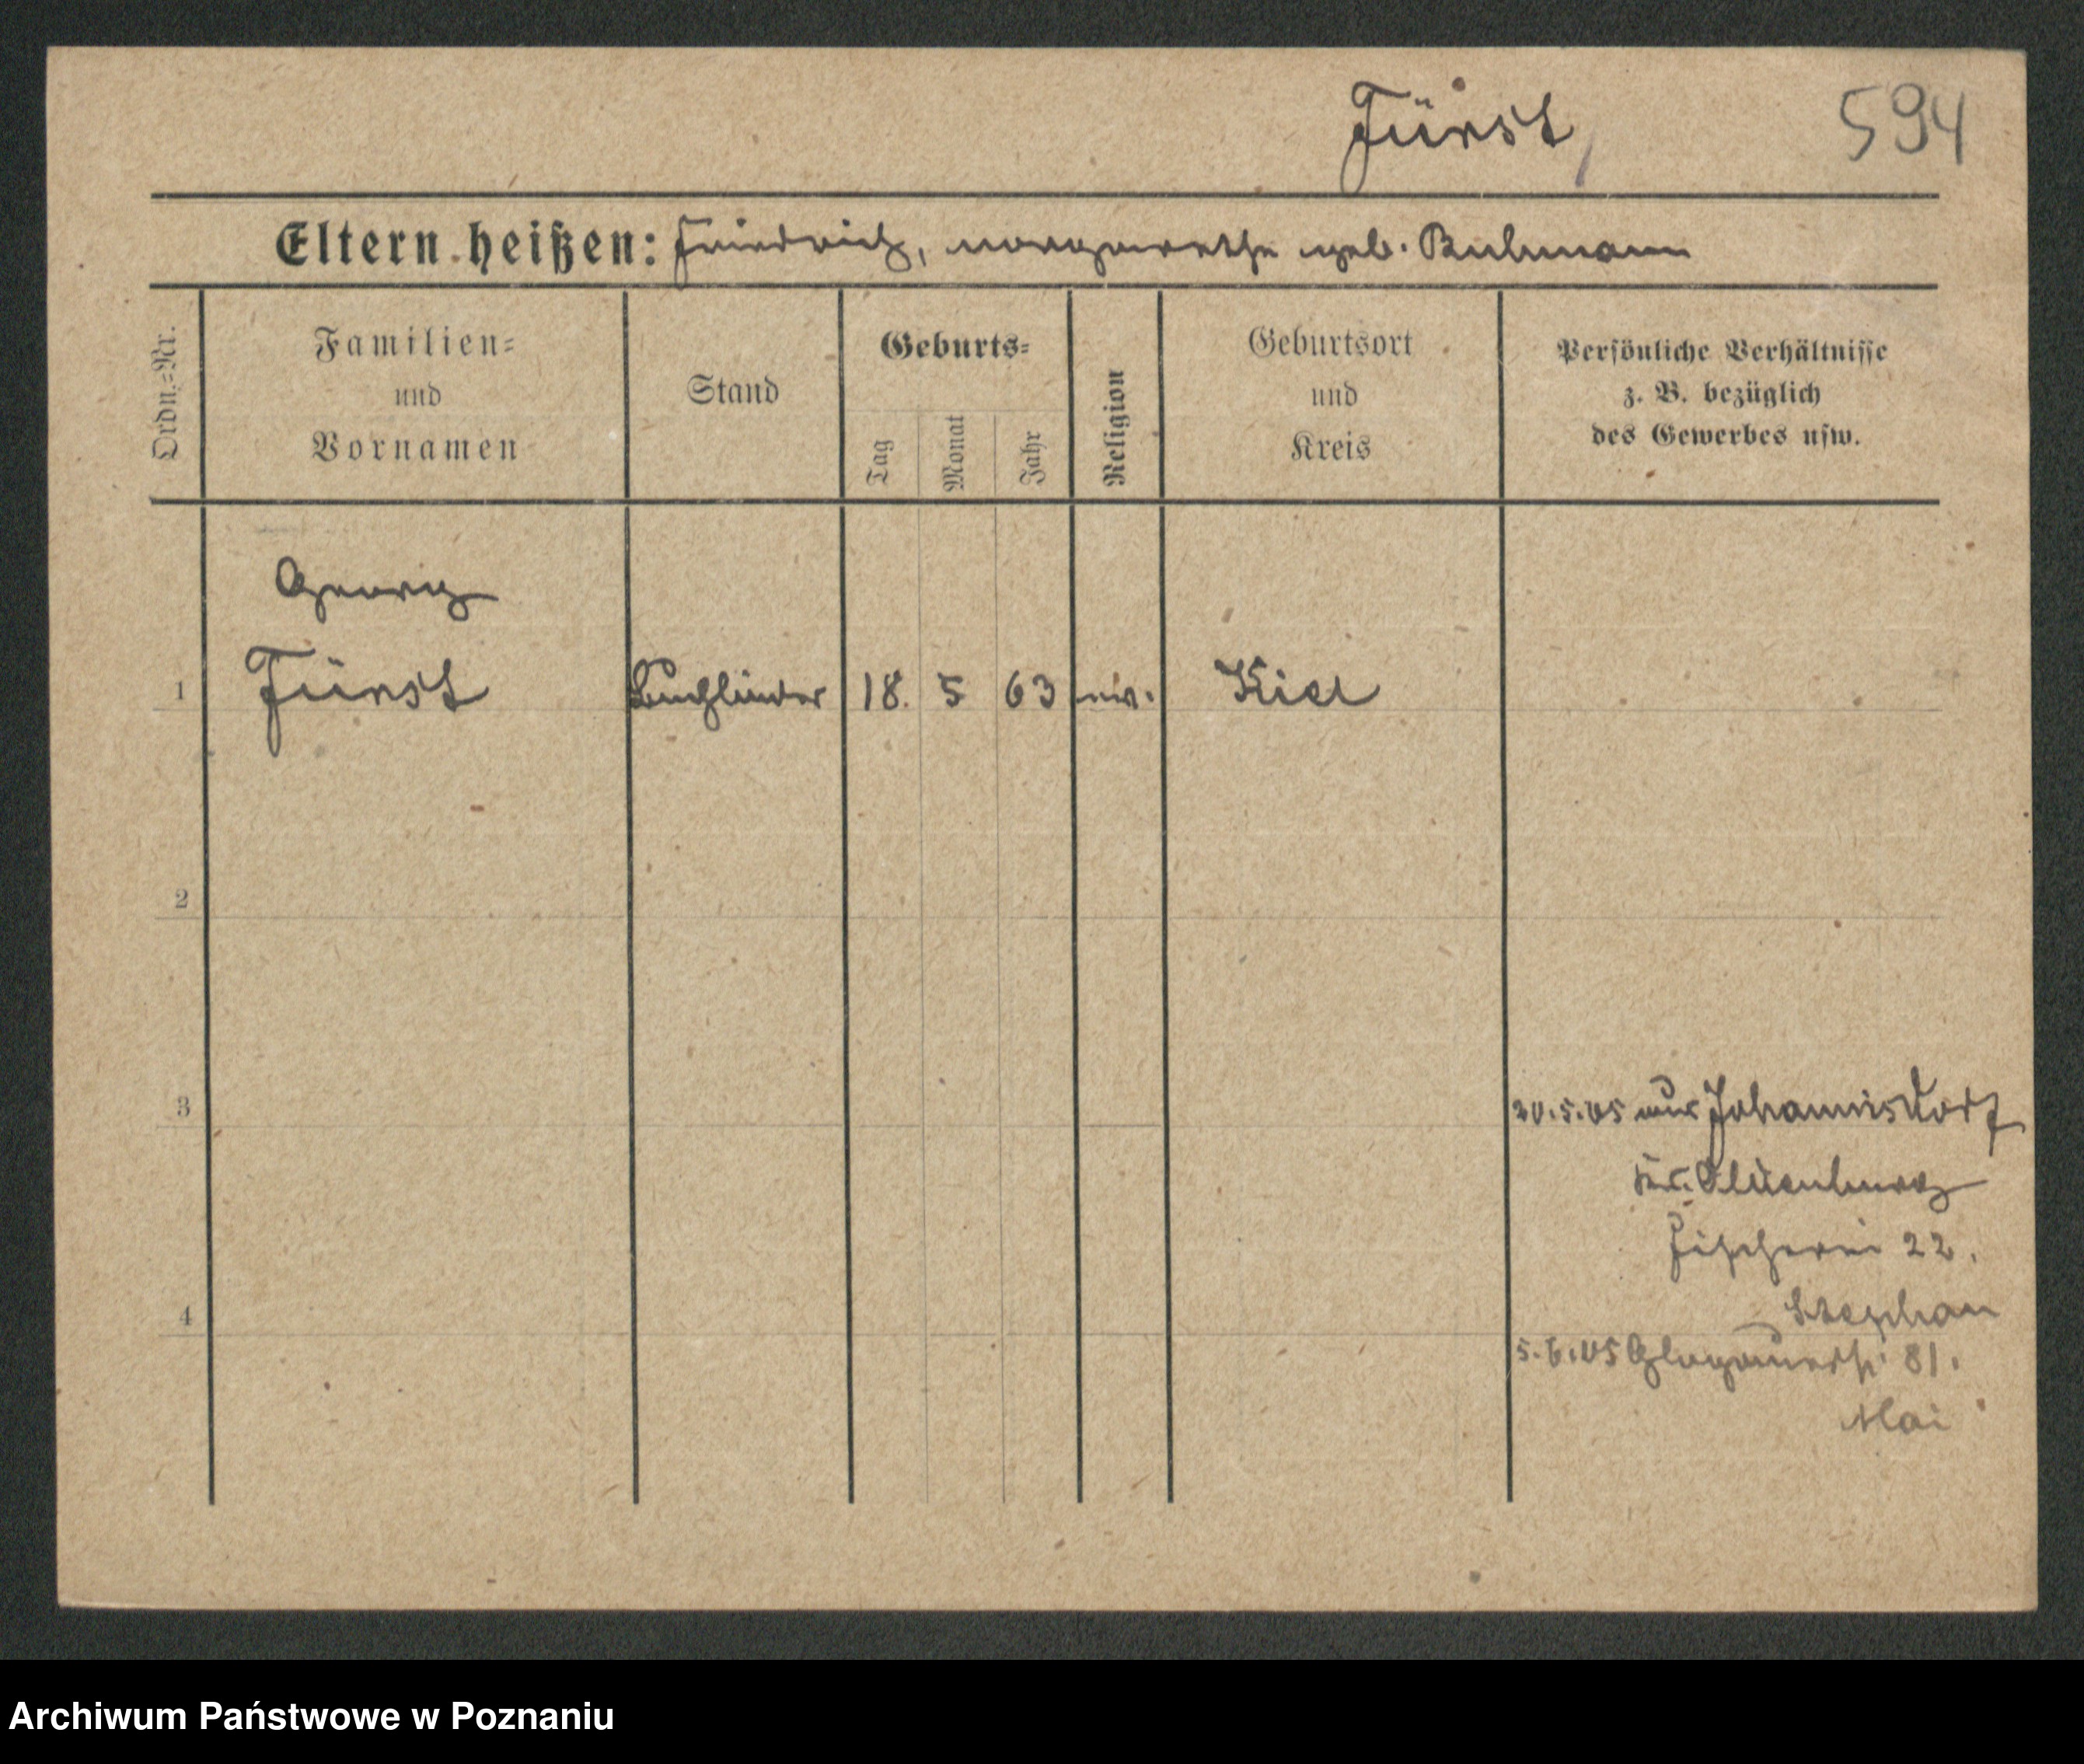 Fürst, 594
Eltern heißen: Friedrich, Margarethe geb. Buhmann
Ordn.-Nr.
Familien-
und
Vornamen
Stand
Geburts-
Tag
Monat
Jahr
Religion
Geburtsort
und
Kreis
Persönliche Verhältnisse
z. B. bezüglich
des Gewerbes usw.
Georg
1 Fürst Buchbinder 18. 5 63 ev. Kiel
2
3
20.5.05 aus Johannisdorf
Kr. Oldenburg
Fischerei 22.
4
Stephan
5.6.05 Glogauerstr. 81.
Mai
Archiwum Państwowe w Poznaniu